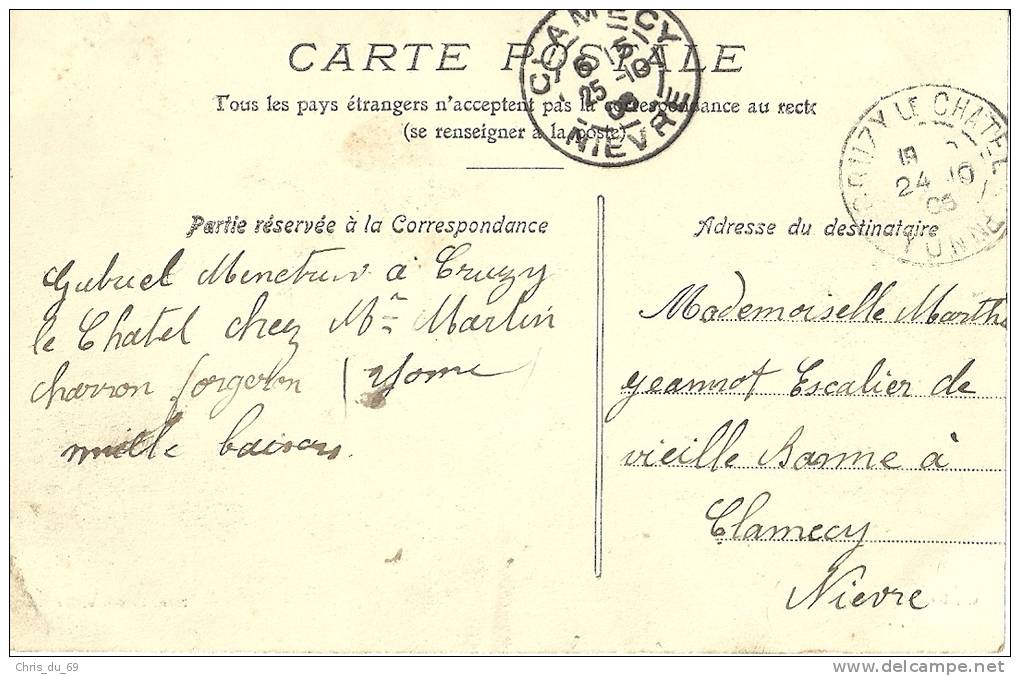 CARTE POSTALE
Tous les pays étrangers n'acceptent pas la correspondance au recto
(se renseigner à la poste)
CLAMECY
6
25 -10
NIEVRE
CRUZY LE CHATEL
24 10
05
YONNE
Partie réservée à la Correspondance
Gabriel à Cruzy
le Chatel chez Mr Martin
charron forgeron (Yonne)
mille baisers.
Adresse du destinataire
Mademoiselle Marthe
Jeannot Escalier de
vieille Rome à
Clamecy
Nièvre
Chris_du_69
delcampe.net